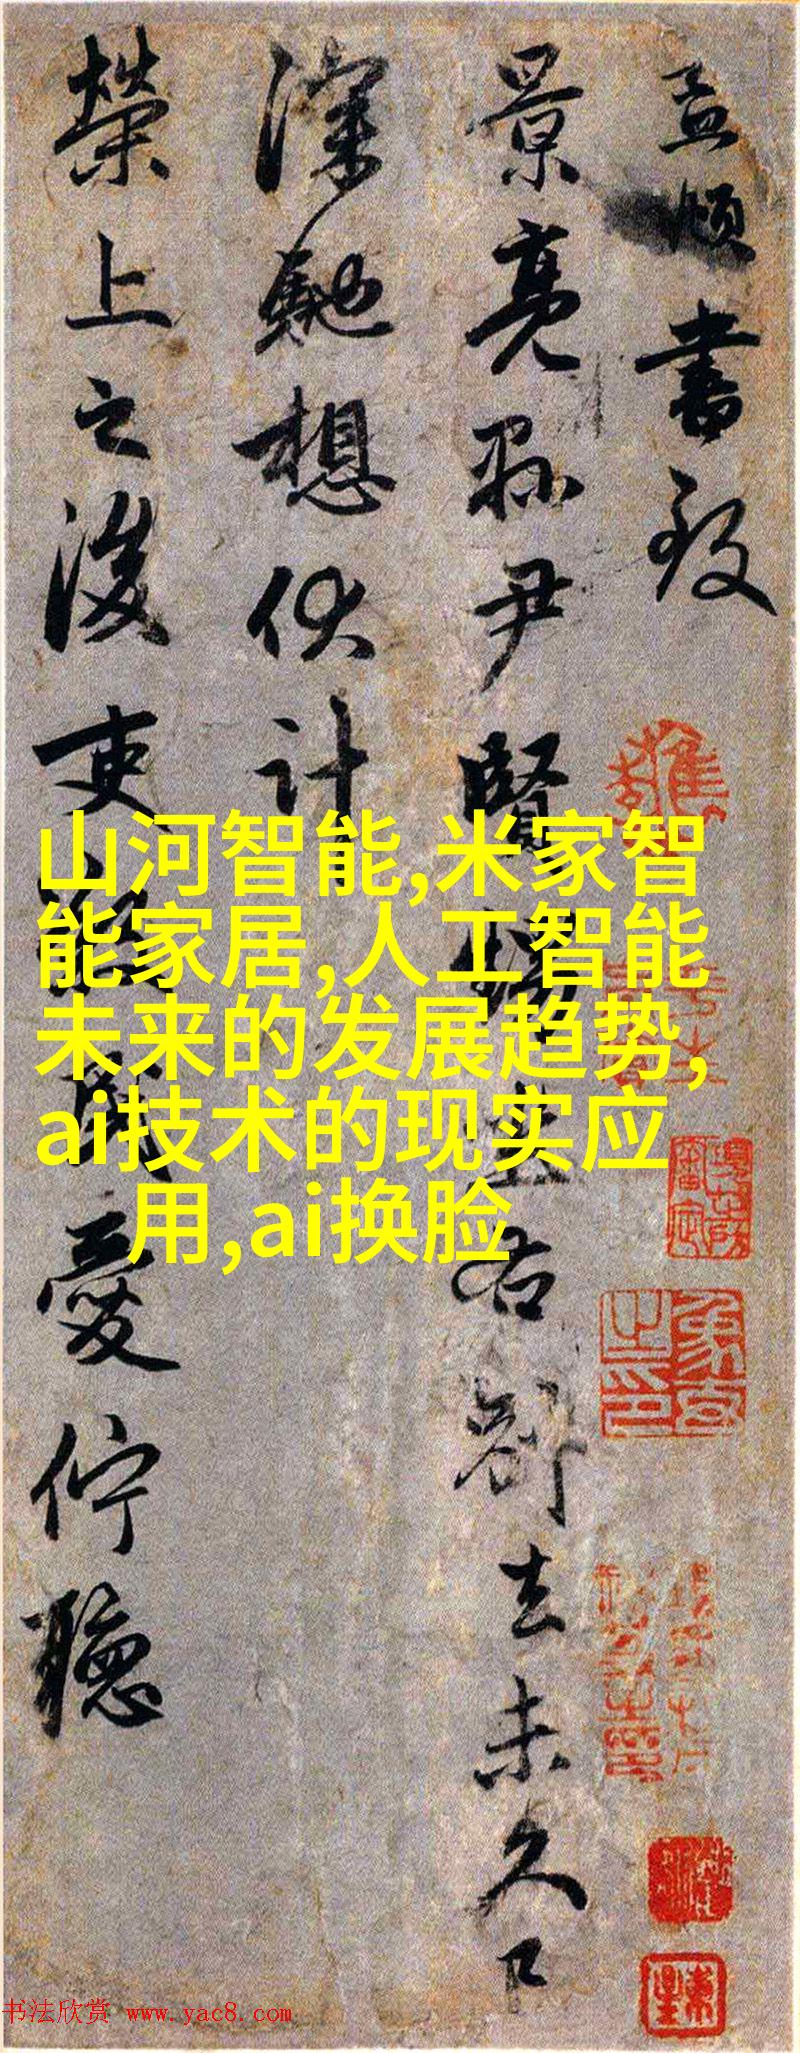 孟頫書致
景亮縣尹賢坐右別去未久
深馳想伏計
榮上之後吏民愛佇聽
山河智能,米家智
能家居,人工智能
未来的发展趋势,
ai技术的现实应
用,ai换脸
书法欣赏 www.yac8.com